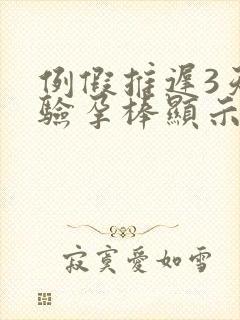 例假推遲3天
驗孕棒顯示
寂寞愛如雪